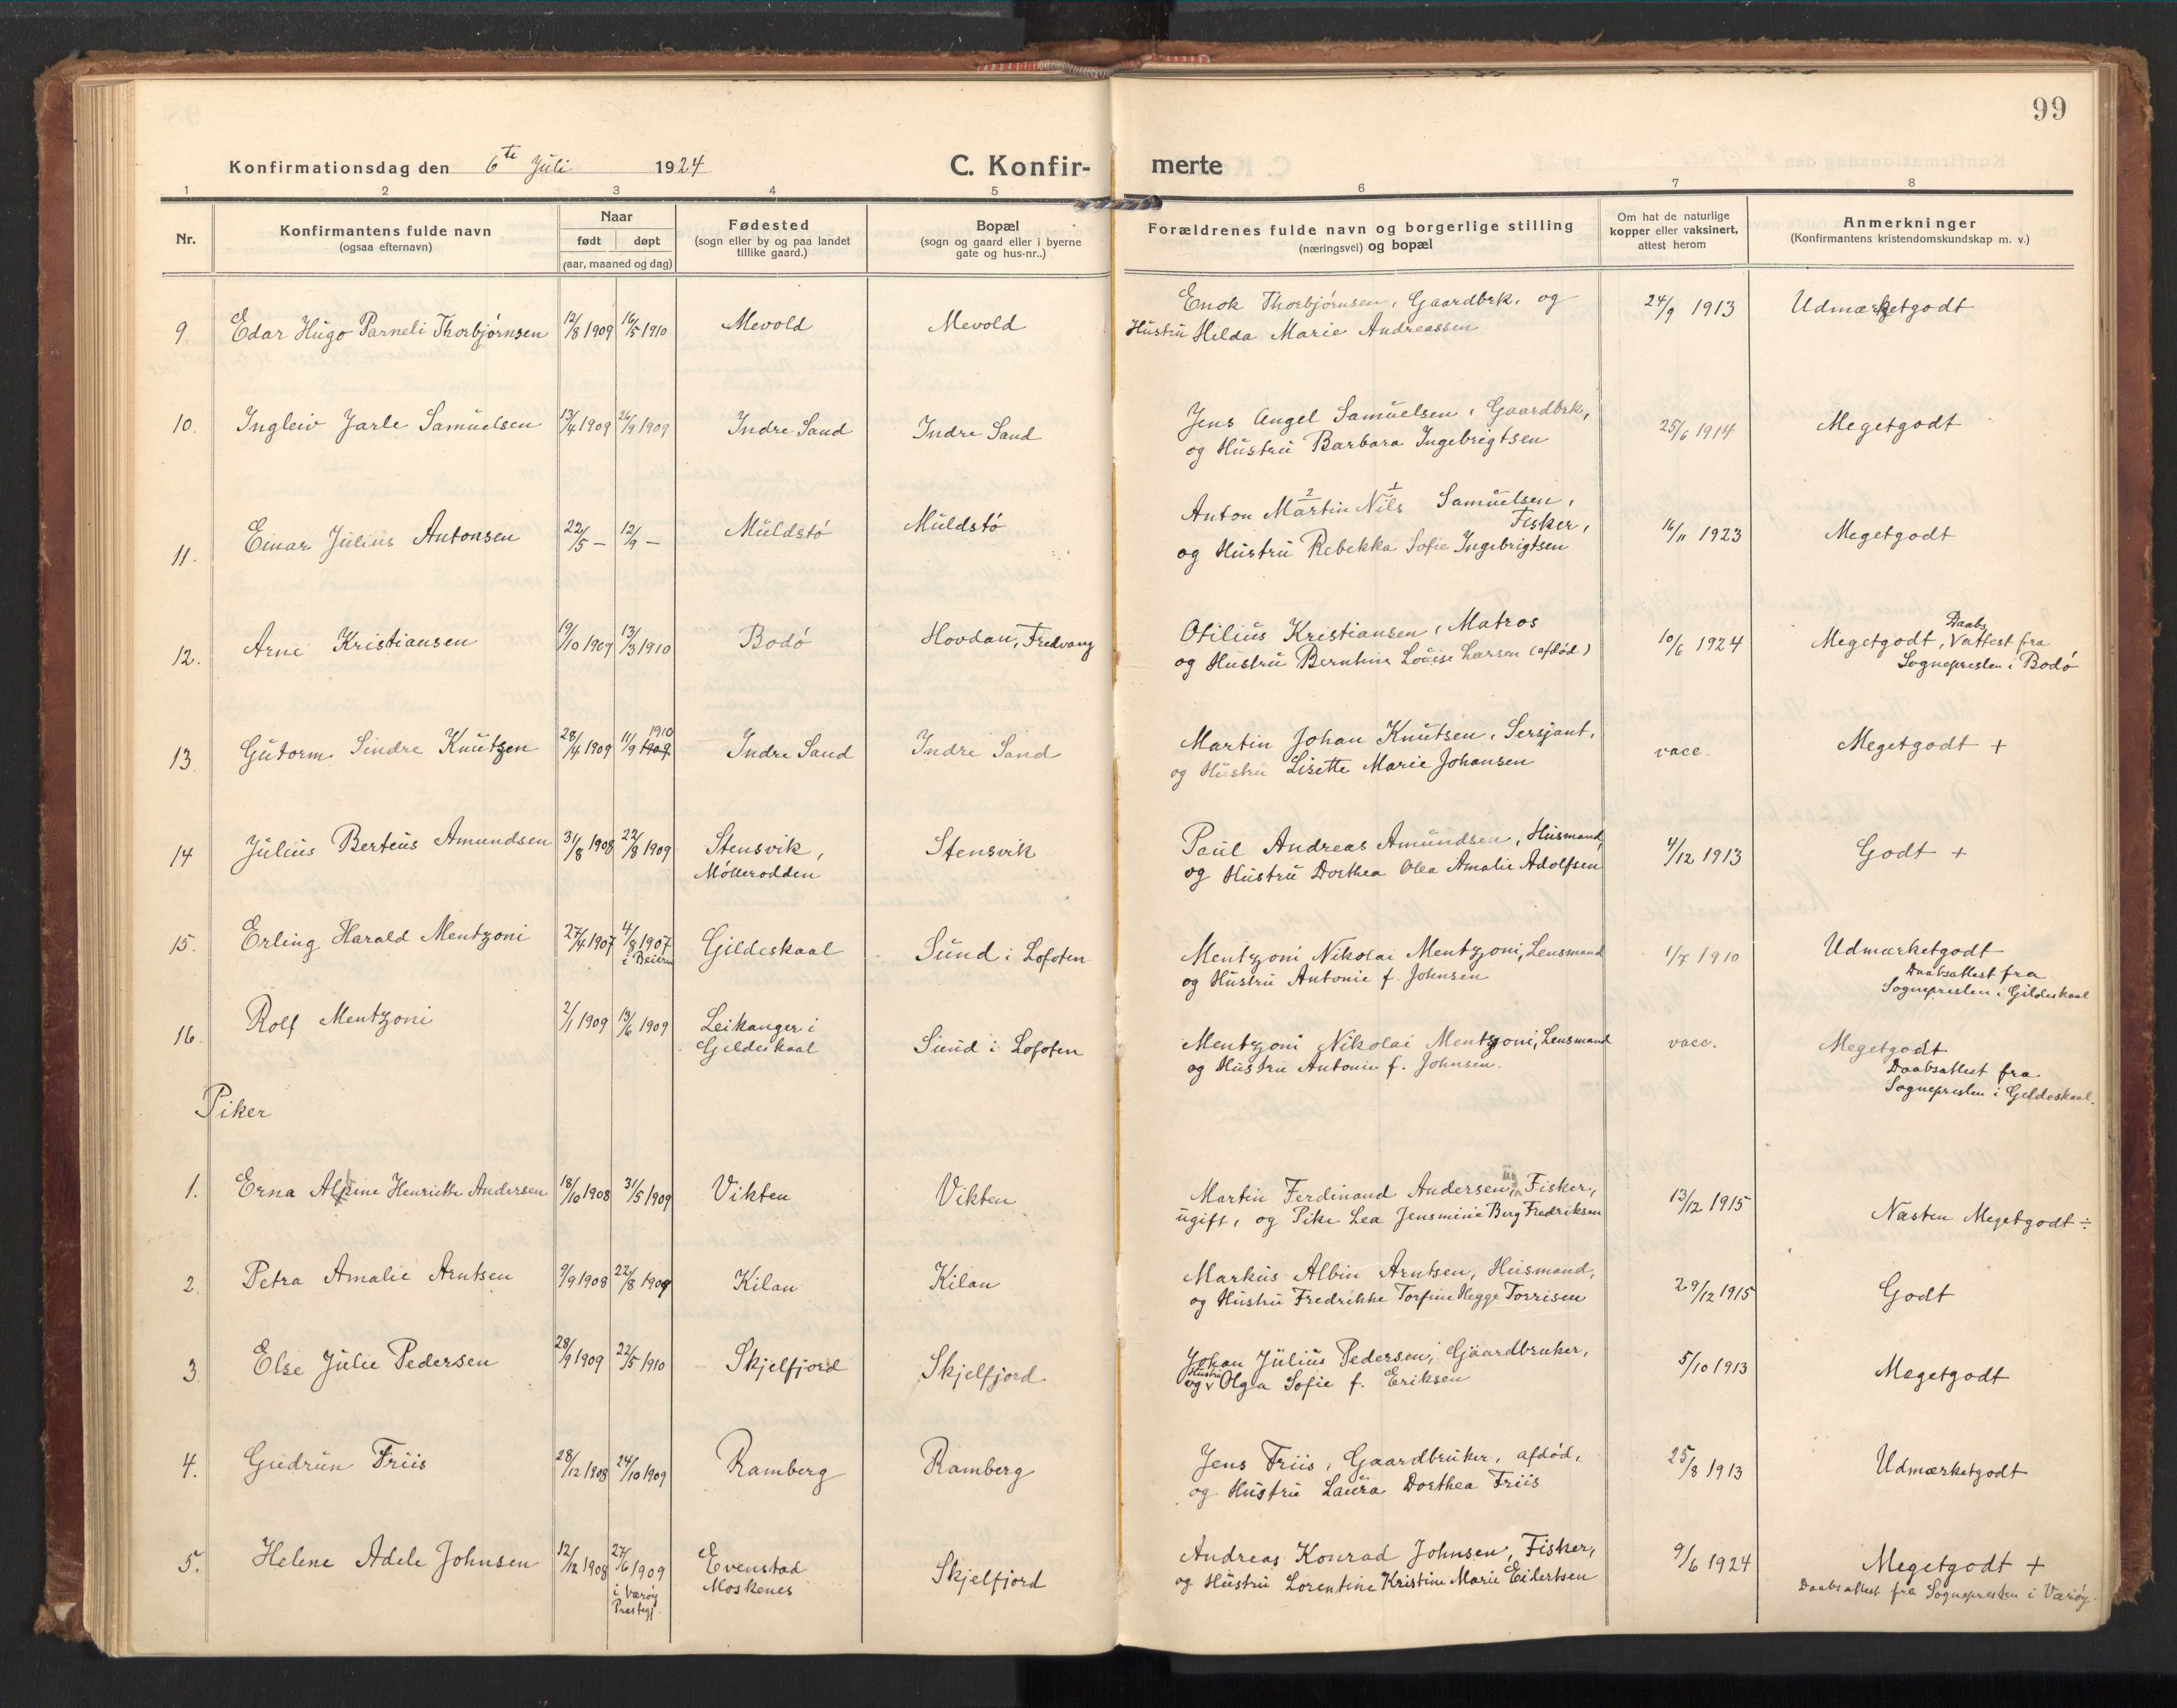 99
Konfirmationsdag den 6te Juli 1924
C. Konfirmerte
1 2 3 4 5 6 7 8
Nr.
Konfirmantens fulde navn
(ogsaa efternavn)
Naar
født døpt
(aar, maaned og dag)
Fødested
(sogn eller by og paa landet
tillike gaard.)
Bopæl
(sogn og gaard eller i byerne
gate og hus-nr..)
Forældrenes fulde navn og borgerlige stilling
(næringsvei) og bopæl
Om hat de naturlige
kopper eller vaksinert,
attest herom
Anmerkninger
(Konfirmantens kristendomskundskap m. v.)
9 Edar Hugo Parneli Thorbjørnsen 12/8 1909 16/5 1910 Mevold Mevold Enok Thorbjørnsen, Gaardbrk. og 24/9 1913 Udmærketgodt
Hustru Hilda Marie Andreassen
10. Ingleiv Jarle Samuelsen 13/4 1909 26/9 1909 Indre Sand Indre Sand Jens Angel Samuelsen, Gaardbrk, 25/6 1914 Megetgodt
og Hustru Barbara Ingebrigtsen
11. Einar Julius Antonsen 22/5 — 12/9 — Muldstø Muldstø Anton Martin 2 Nils 1 Samuelsen, 16/11 1923 Megetgodt
Fisker,
og Hustru Rebekka Sofie Ingebrigtsen
12. Arne Kristiansen 19/10 1909 13/3 1910 Bodø Hovdan, Fredvang Otilius Kristiansen, Matros 10/6 1924 Megetgodt, Daabsattest fra
og Hustru Berntine Louise Larsen (afdød) Sognepresten i Bodø
13. Gutorm Sindre Knutzen 28/4 1909 11/9 1909 1910 Indre Sand Indre Sand Martin Johan Knutsen, Sersjant, vacc. Megetgodt +
og Hustru Lisette Marie Johansen
14 Julius Berteus Amundsen 31/8 1908 22/8 1909 Stensvik, Stensvik Paul Andreas Amundsen, Husmand, 4/12 1913 Godt +
Møllerodden og Hustru Dorthea Olea Amalie Adolfsen
15. Erling Harald Mentzoni 27/4 1907 4/8 1907 Gildeskaal Sund i Lofoten Mentzoni Nikolai Mentzoni, Lensmand 1/7 1910 Udmærketgodt
i Beiern og Hustru Antonie f. Johnsen Daabsattest fra
Sognepresten i Gildeskaal
16. Rolf Mentzoni 2/1 1909 13/6 1909 Leikanger i Sund i Lofoten Mentzoni Nikolai Mentzoni, Lensmand vacc. Megetgodt
Gildeskaal og Hustru Antonie f. Johnsen. Daabsattest fra
Sognepresten i Gildeskaal.
Piker
1. Erna Alpine Henriette Andersen 18/10 1908 31/5 1909 Vikten Vikten Martin Ferdinand Andersen, Fisker, 13/12 1915 Næsten Megetgodt ÷
ugift, og Pike Lea Jensmine Berg Fredriksen
2. Petra Amalie Arntsen 9/9 1908 22/8 1909 Kilan Kilan Markus Albin Arntsen, Husmand, 29/12 1915 Godt
og Hustru Fredrikke Torfine Hegge Torrisen
3. Else Julie Pedersen 28/9 1909 22/5 1910 Skjelfjord Skjelfjord Johan Julius Pedersen, Gaardbruker, 5/10 1913 Megetgodt
og Hustru Olga Sofie f. Eriksen
4. Gudrun Friis 28/12 1908 24/10 1909 Ramberg Ramberg Jens Friis, Gaardbruker, afdød, 25/8 1913 Udmærketgodt
og Hustru Laura Dorthea Friis
5. Helene Adele Johnsen 12/12 1908 27/6 1909 Evenstad Skjelfjord Andreas Konrad Johnsen, Fisker, 9/6 1924 Megetgodt +
i Værøy Moskenes og Hustru Lorentine Kristine Marie Eilertsen Daabsattest fra Sognepresten i Værøy.
Prestegj.